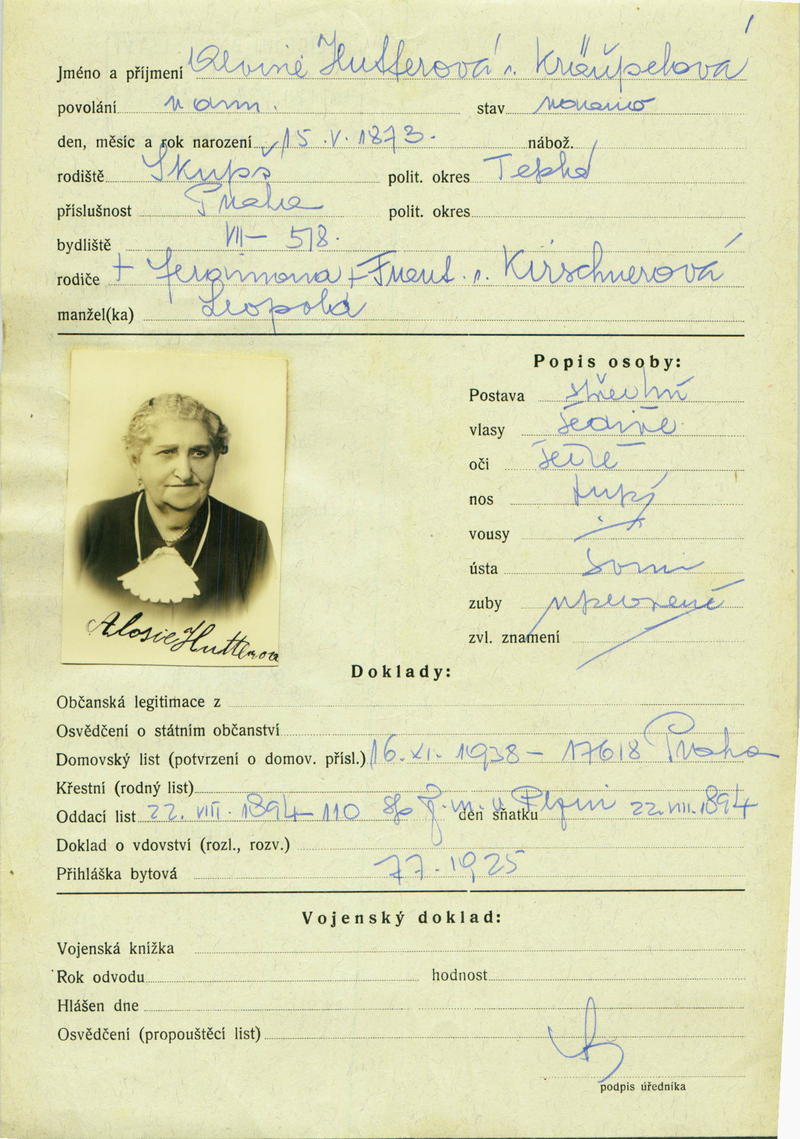 Jméno a příjmení Hutterová r.
povolání v dom. stav
den, měsíc a rok narození 15.V.1873. nábož. /
rodiště Skupš polit. okres Teplá
příslušnost Praha polit. okres
bydliště VII – 518.
rodiče + + r. Kirschnerová
manžel(ka) Leopold
Popis osoby:
Postava střední
vlasy šedivé
oči šedé
nos
vousy
ústa
zuby upravené
zvl. znamení
Hutterova
Doklady:
Občanská legitimace z
Osvědčení o státním občanství
Domovský list (potvrzení o domov. přísl.) 16.XI. 1938 – 17618 Praha
Křestní (rodný list)
Oddací list 22. VIII. 1894 – 110 v Plzni den sňatku 22.VIII.1894
Doklad o vdovství (rozl., rozv.)
Přihláška bytová 1925
Vojenský doklad:
Vojenská knížka
Rok odvodu hodnost
Hlášen dne
Osvědčení (propouštěcí list)
podpis úředníka